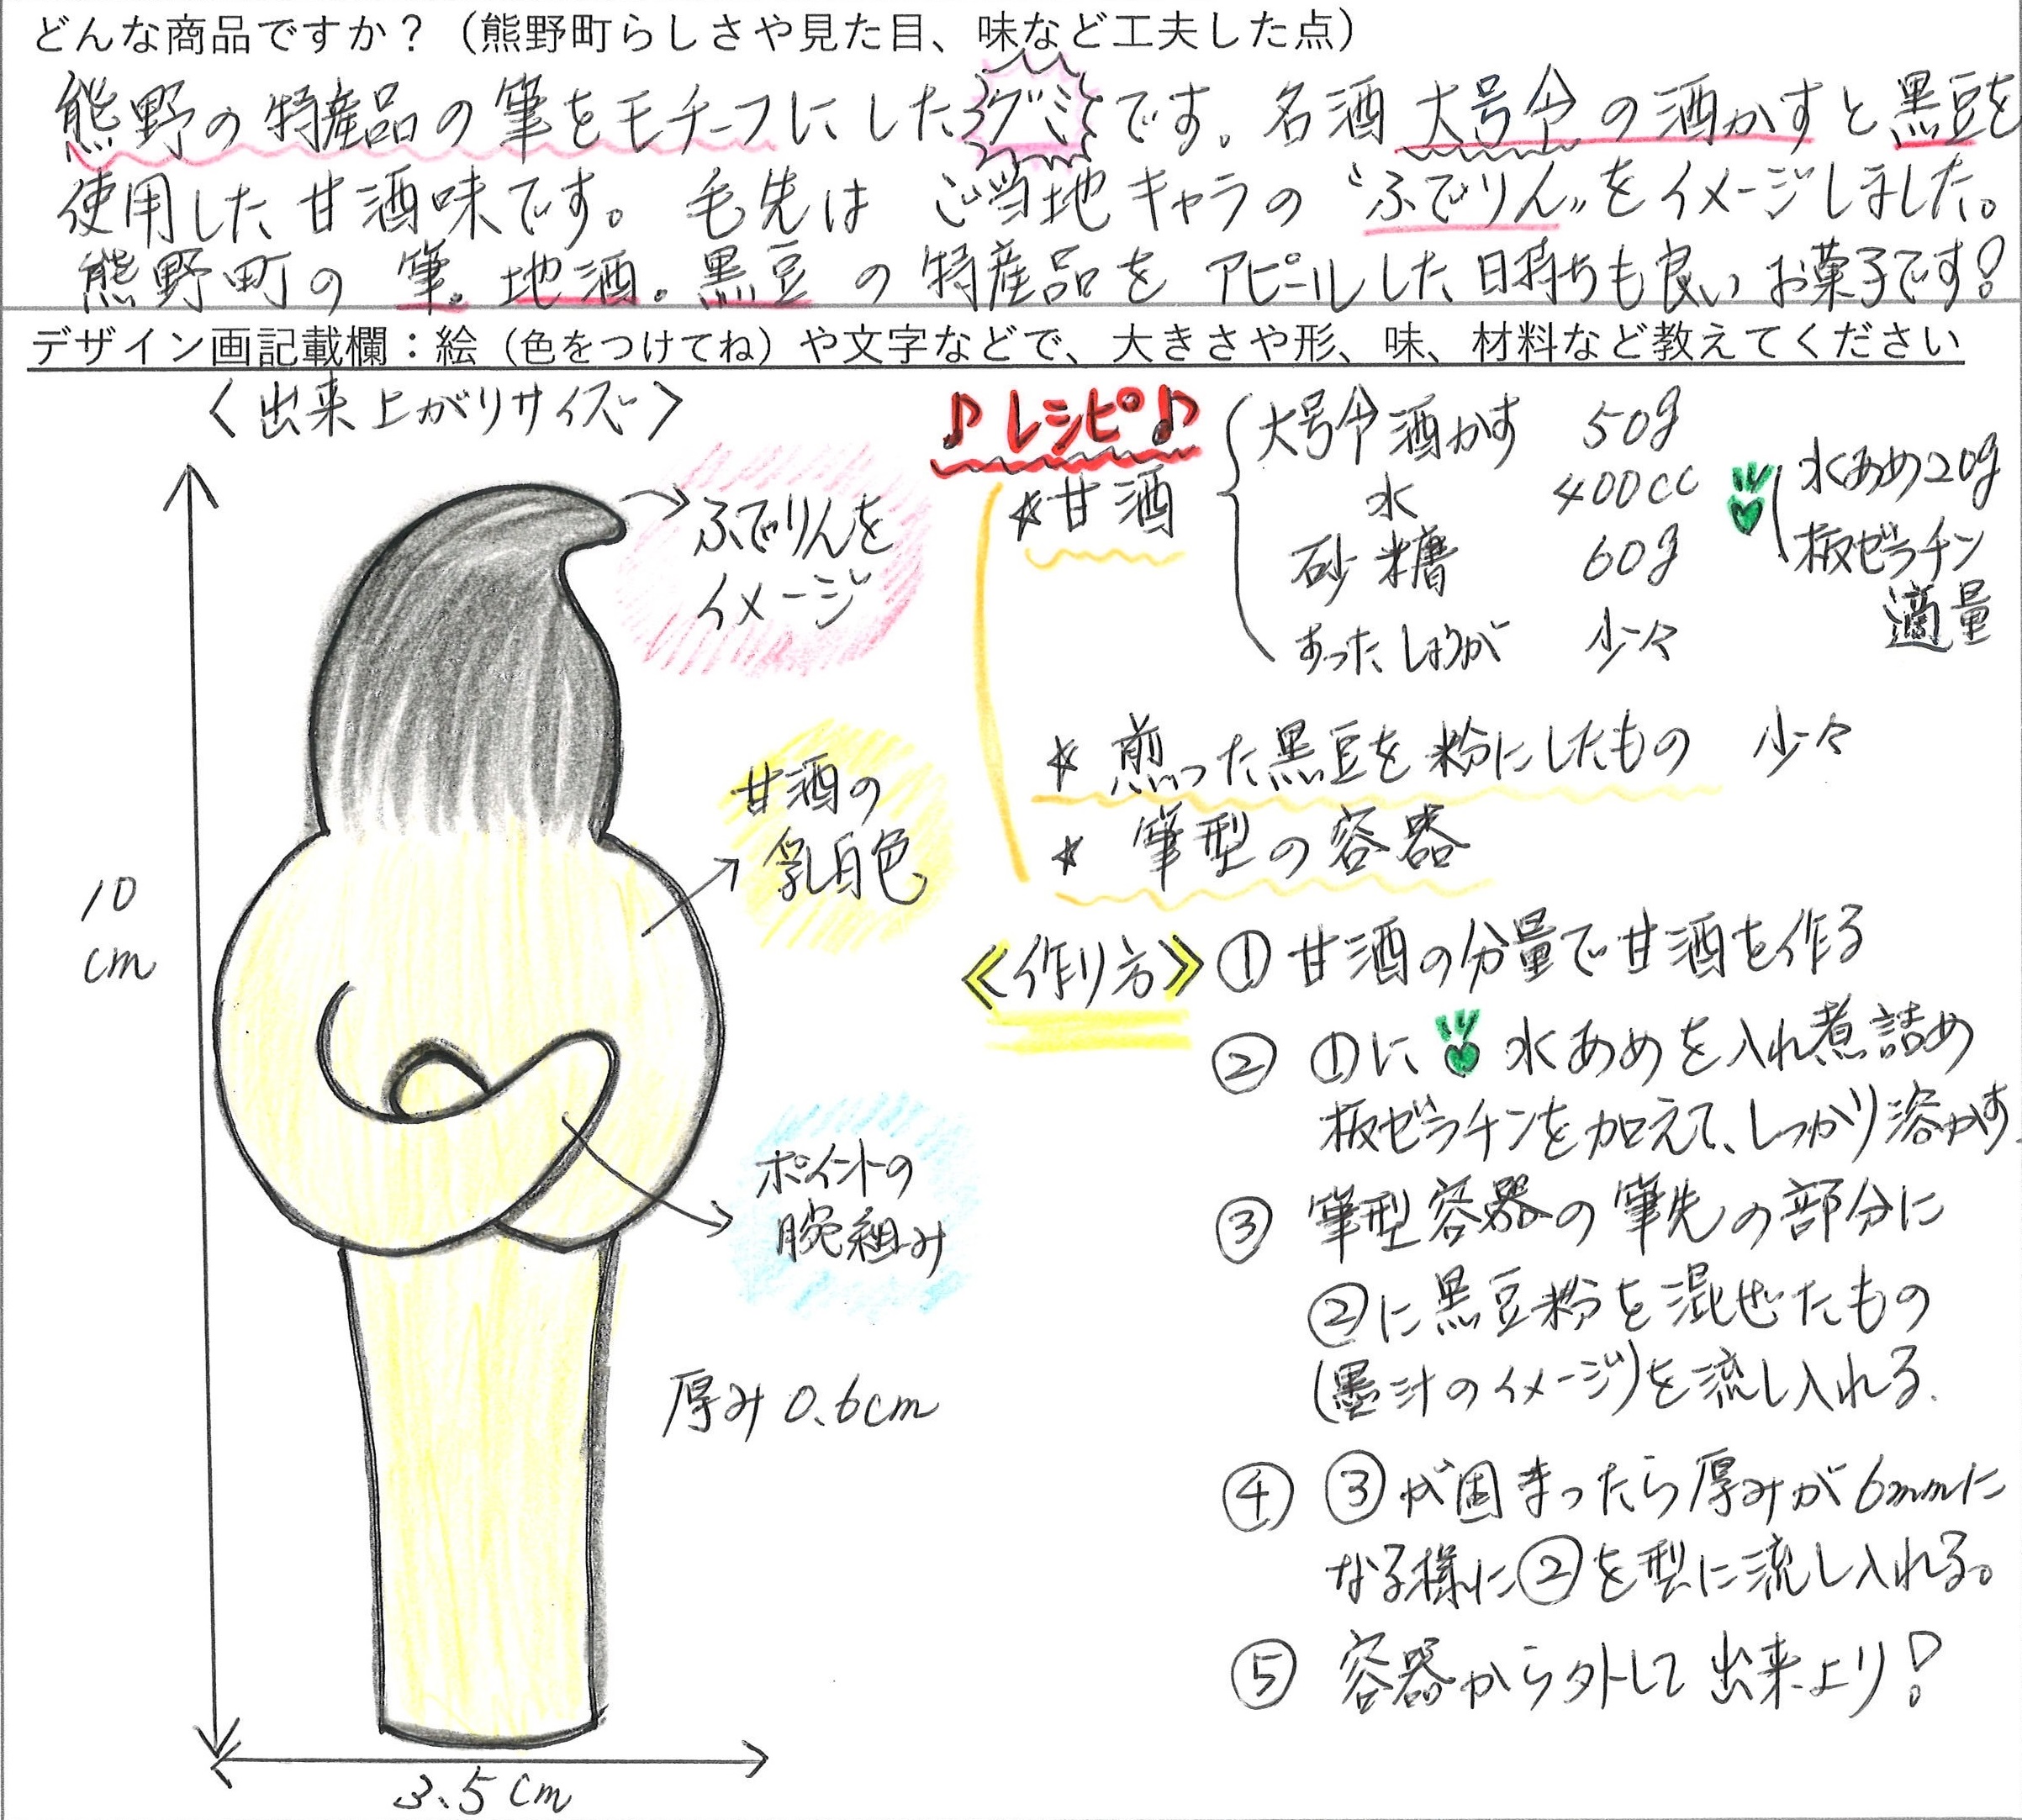 どんな商品ですか？（熊野町らしさや見た目、味など工夫した点）
熊野の特産品の筆をモチーフにしたグミです。名酒 大号令の酒かすと黒豆を
使用した甘酒味です。毛先は ご当地キャラの〝ふでりん〟をイメージしました。
熊野町の 筆。地酒。黒豆 の特産品を アピールした日持ちも良いお菓子です！
デザイン画記載欄：絵（色をつけてね）や文字などで、大きさや形、味、材料など教えてください
〈出来上がりサイズ〉
10
cm
ふでりんを
イメージ
甘酒の
乳白色
ポイントの
腕組み
厚み0.6cm
3.5cm
♪レシピ♪
☆甘酒
大号令酒かす 50g
水 400cc
砂糖 60g
すったしょうが 少々
水あめ20g
板ゼラチン
適量
☆ 煎った黒豆を粉にしたもの 少々
☆ 筆型の容器
《作り方》
① 甘酒の分量で甘酒を作る
② ①に 水あめを入れ煮詰め
板ゼラチンを加えて、しっかり溶かす
③ 筆型容器の筆先の部分に
②に黒豆粉を混ぜたもの
(墨汁のイメージ)を流し入れる.
④ ③が固まったら厚みが6mmに
なる様に②を型に流し入れる。
⑤ 容器から外して出来上り！